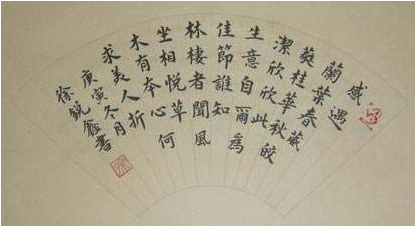 感遇
蘭葉春葳
蕤桂華秋皎
潔欣欣此
生意自爾為
佳節誰知
林棲者聞風
坐相悦草
木有本心何
求美人折
庚寅冬月
徐銳鑫書